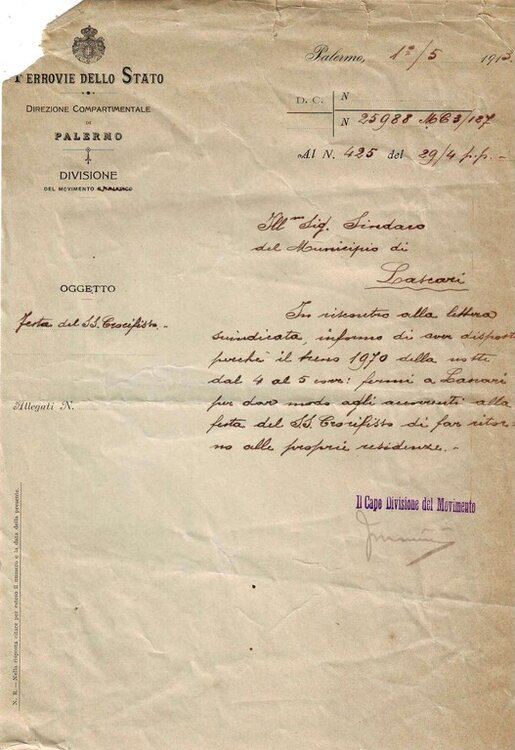 FERROVIE DELLO STATO
DIREZIONE COMPARTIMENTALE
DI
PALERMO
DIVISIONE
DEL MOVIMENTO
Palermo, 1º/5 1913.
D. C. N
N 25988 MC3/127
Al N. 425 del 29/4 p.p. -
Ill^mo Sig. Sindaco
del Municipio di
Lascari
OGGETTO
Festa del SS. Crocifisso. -
Allegati N.
In riscontro alla lettera
suindicata, informo di aver disposto
perchè il treno 1970 della notte
dal 4 al 5 corr: fermi a Lascari
per dar modo agli accorrenti alla
festa del SS. Crocifisso di far ritor-
no alle proprie residenze. -
Il Capo Divisione del Movimento
N. B. - Nella risposta citare per esteso il numero e la data della presente.